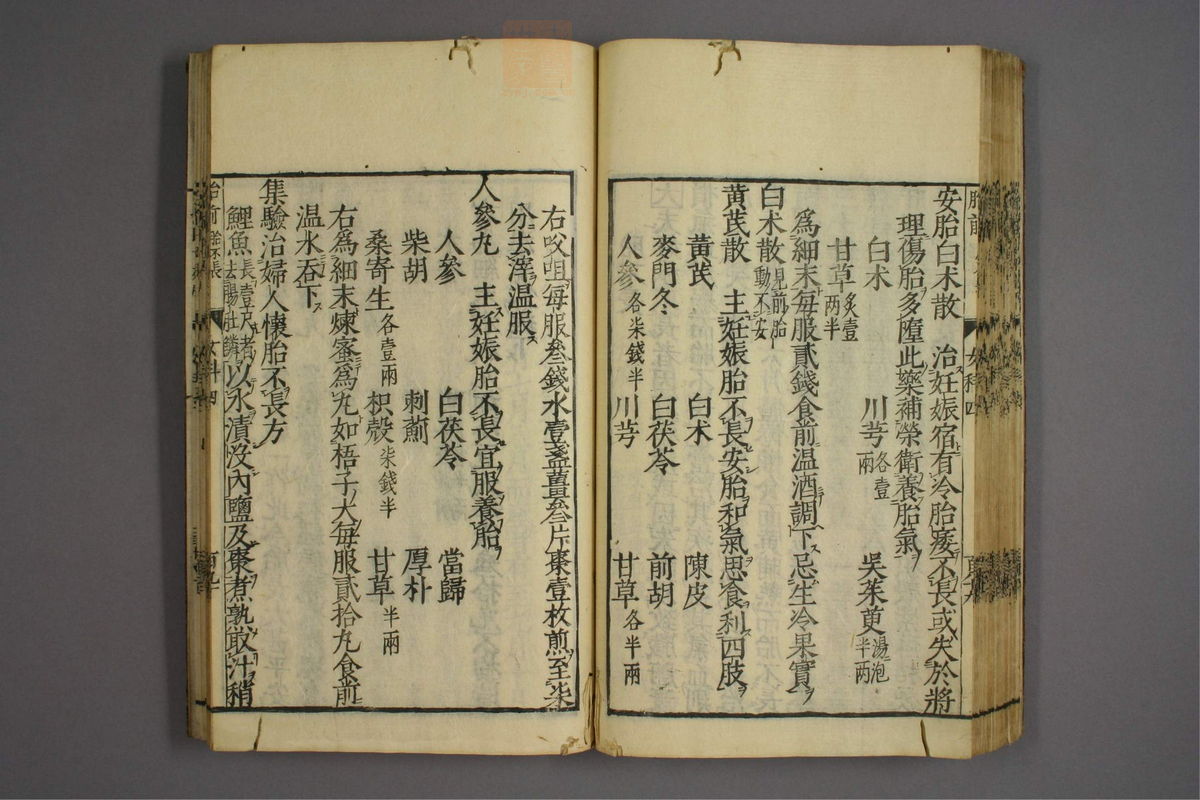 安胎白朮散　治妊娠宿有冷胎痿不長或失於將
理傷胎多墮此藥補榮衛養胎氣
白朮　川芎各壹兩　吳茱萸湯泡半兩
甘草炙壹兩半
爲細末每服貳錢食前温酒調下忌生冷果實
白朮散見前胎動不安
黄芪散　主妊娠胎不長安胎和氣思食利四肢
黄芪　白朮　陳皮
麥門冬　白茯苓　前胡
人參各柒錢半　川芎　甘草各半兩
右㕮咀每服叄錢水壹盞薑叄片棗壹枚煎至柒
分去滓温服
人參丸　主妊娠胎不長宜服養胎
人參　白茯苓　當歸
柴胡　刺薊　厚朴
桑寄生各壹兩　枳殼柒錢半　甘草半兩
右爲細末煉蜜爲丸如梧子大每服貳拾丸食前
温水吞下
集驗治婦人懷胎不長方
鯉魚長壹尺者去腸肚鱗以水漬沒內鹽及棗煮熟取汁稍
胎前
女科四